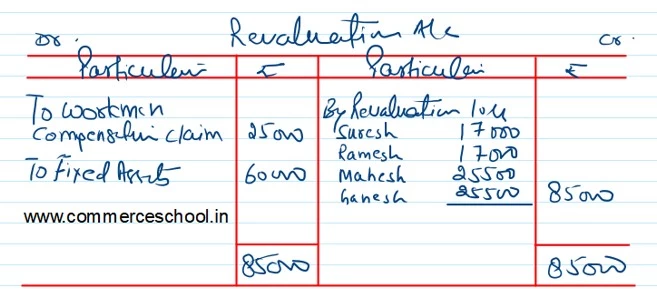 Dr. Revaluation A/c Cr.
Particulars ₹ Particulars ₹
To Workmen By Revaluation loss
Compensation claim 25000 Suresh 17000
Ramesh 17000
To Fixed Assets 60000 Mahesh 25500
Ganesh 25500 85000
www.commerceschool.in
85000 85000